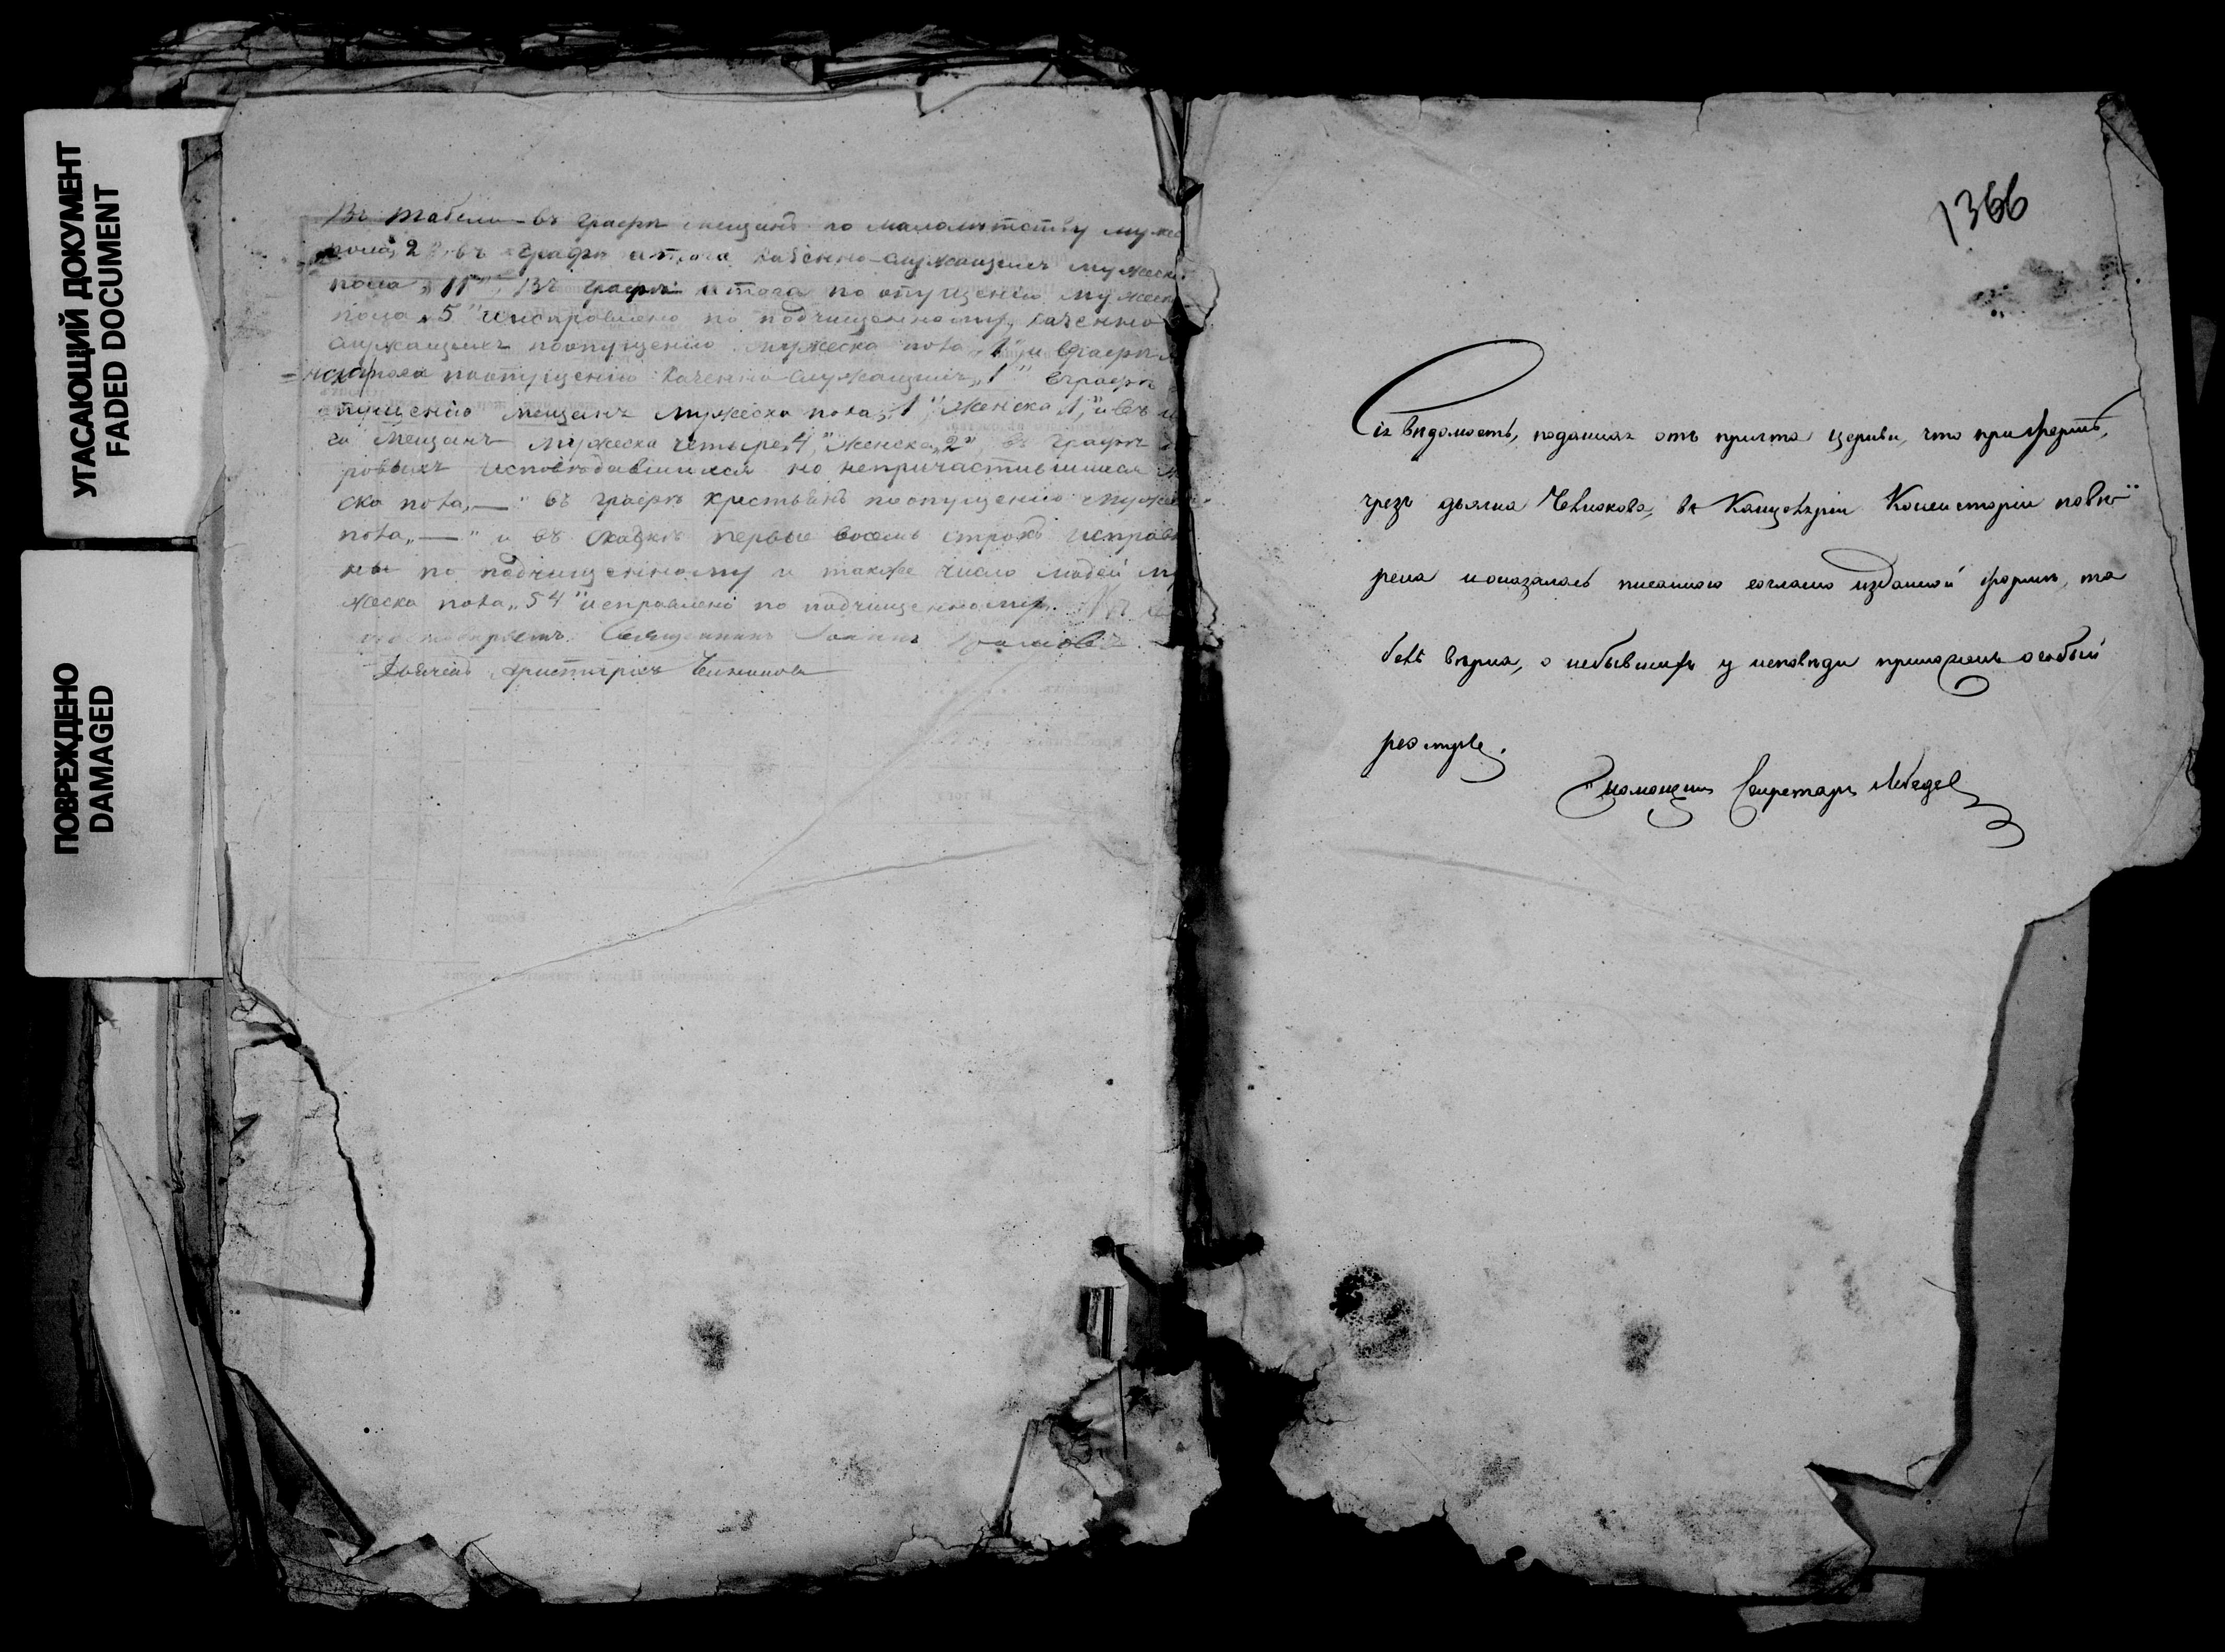 УГАСАЮЩИЙ ДОКУМЕНТ
FADED DOCUMENT
ПОВРЕЖДЕНО
DAMAGED
Въ табели въ графѣ мещанъ по малолѣтству мужес
пола, 2, въ графѣ итога казенно-служащихъ мужеск
пола „11“, Въ графѣ итога по опущенію мужеск
пола „5“ исправлено по подчищенному, казенно
служащихъ поопущенію мужеска пола „1“ и вграфѣ
поопущенію казенно-служащихъ „1“ вграфѣ
пущенію мещанъ мужеска пола, „1“, женска „1“, и въ
га мещанъ мужеска четыре „4“, женска „2“, въ графѣ
ровыхъ исповѣдавшихся но непричастившихся
ска пола, — “ въ графѣ крестьянъ поопущенію мужес
пола „ — “ и въ первые восемь строкъ исправ
ны по подчищенному и также число людей му
жеска пола „54“ исправлено по подчищенному.
Священникъ Іоаннъ
Дьячекъ
1366
Сія вѣдомость, поданная отъ причта церкви, что при
чрезъ дьячка Чевнокова, въ Канцеляріи Консисторіи повѣ
рена и оказалась писанною согласно изданной формѣ, та
бель вѣрна, о небывшихъ у исповѣди приложенъ особый
реэстръ.
Помощникъ Секретаря Лебедев